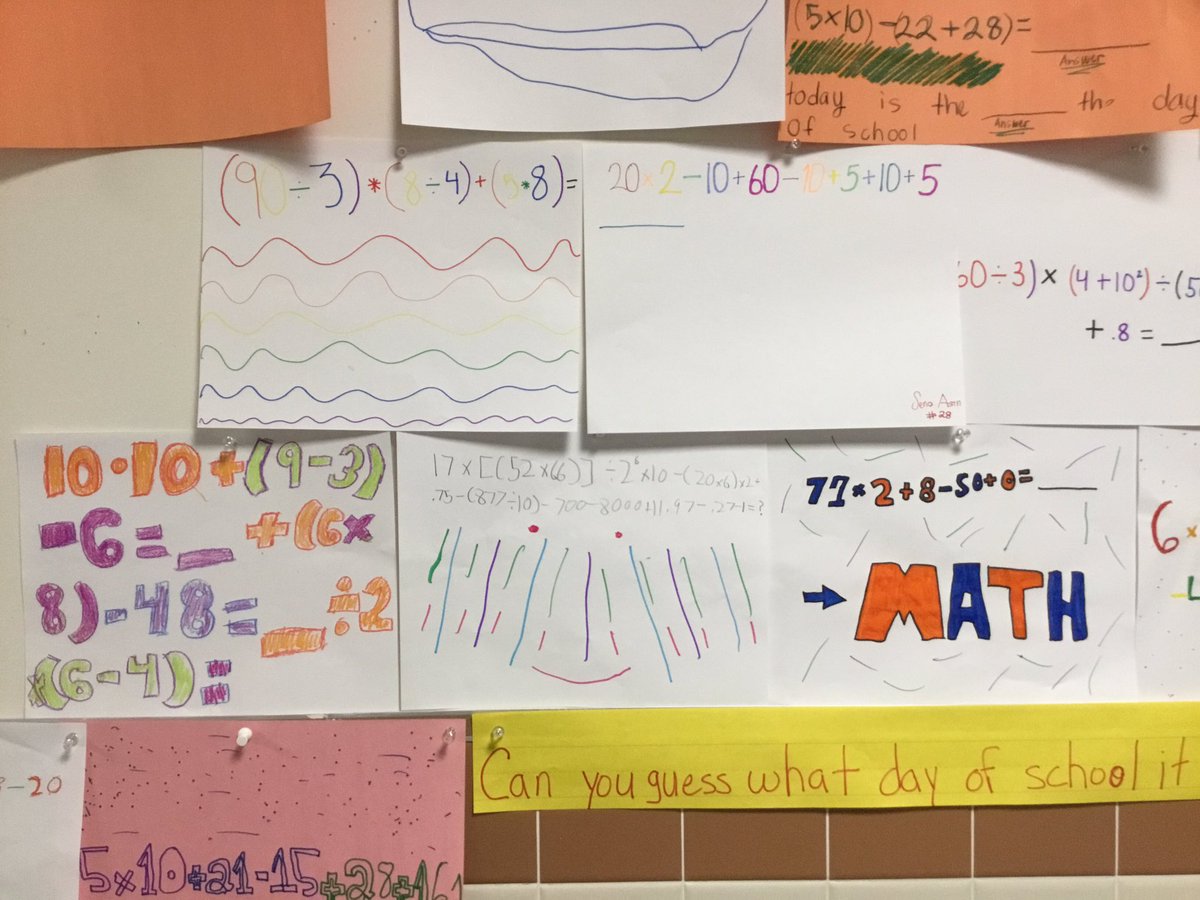 (5×10)-22+28)= ______
Answer
today is the ______ th day
Answer
of school
(90÷3)*(8÷4)+(5*8)=
20×2-10+60-10+5+10+5
60÷3)×(4+10²)÷(5
+ .8 = __
#28
10·10+(9-3)
-6=__ +(6×
8)-48=__÷2
×(6-4)=
17×[(52×66)]÷2⁶×10-(20×6)×2+
.75-(877÷10)-700-8000+11.97-.27-1=?
77×2+8-50+0=____
→MATH
6×
-20
5×10+21-15+28+16
Can you guess what day of school it